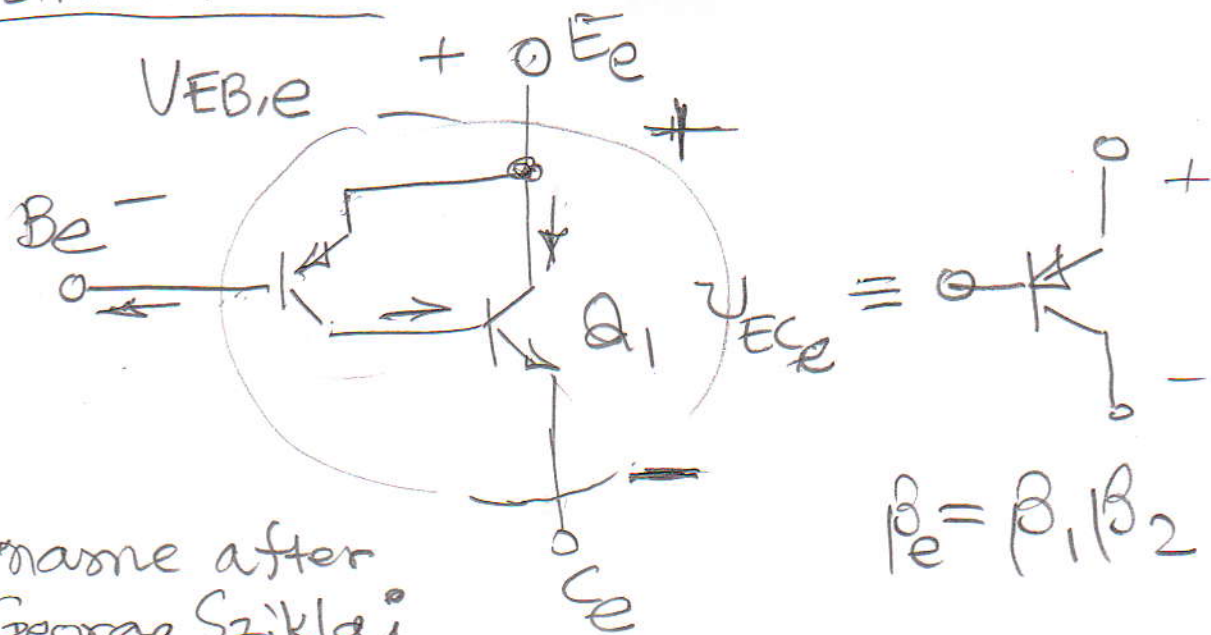 + Ee
VEB,e
+
Be -
Q1
VECe
≡
+
-
-
βe = β1 β2
name after
George Sziklai
Ce